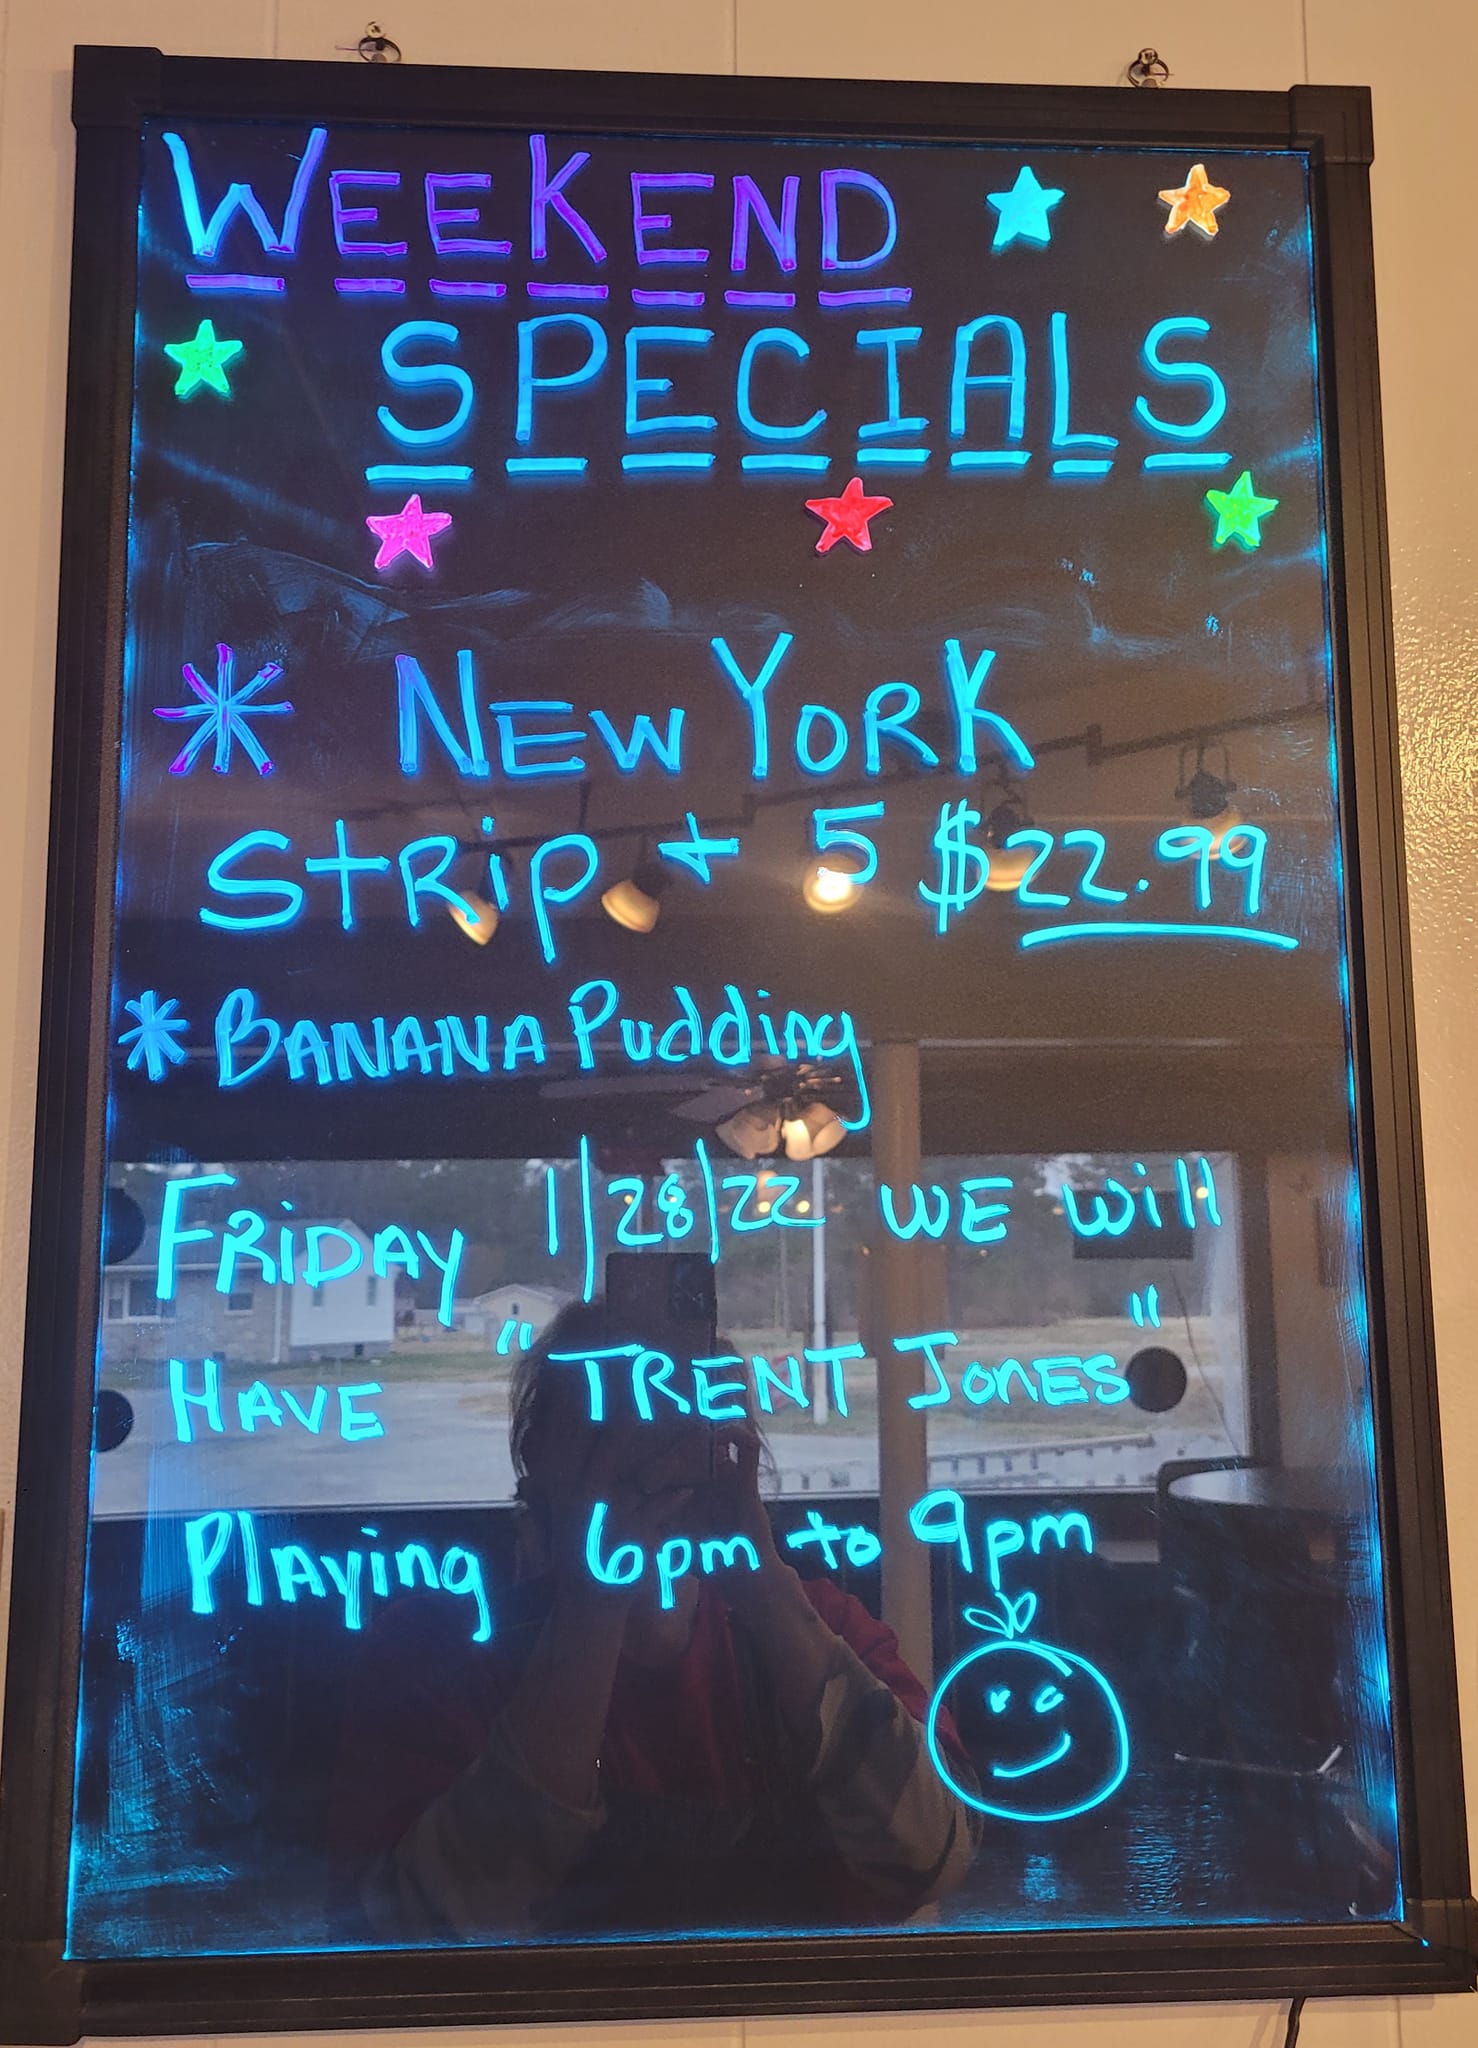 WEEKEND
SPECIALS
* NEW YORK
STRIP + 5 $22.99
* BANANA Pudding
FRIDAY 1/28/22 WE Will
HAVE "TRENT JONES"
Playing 6pm to 9pm